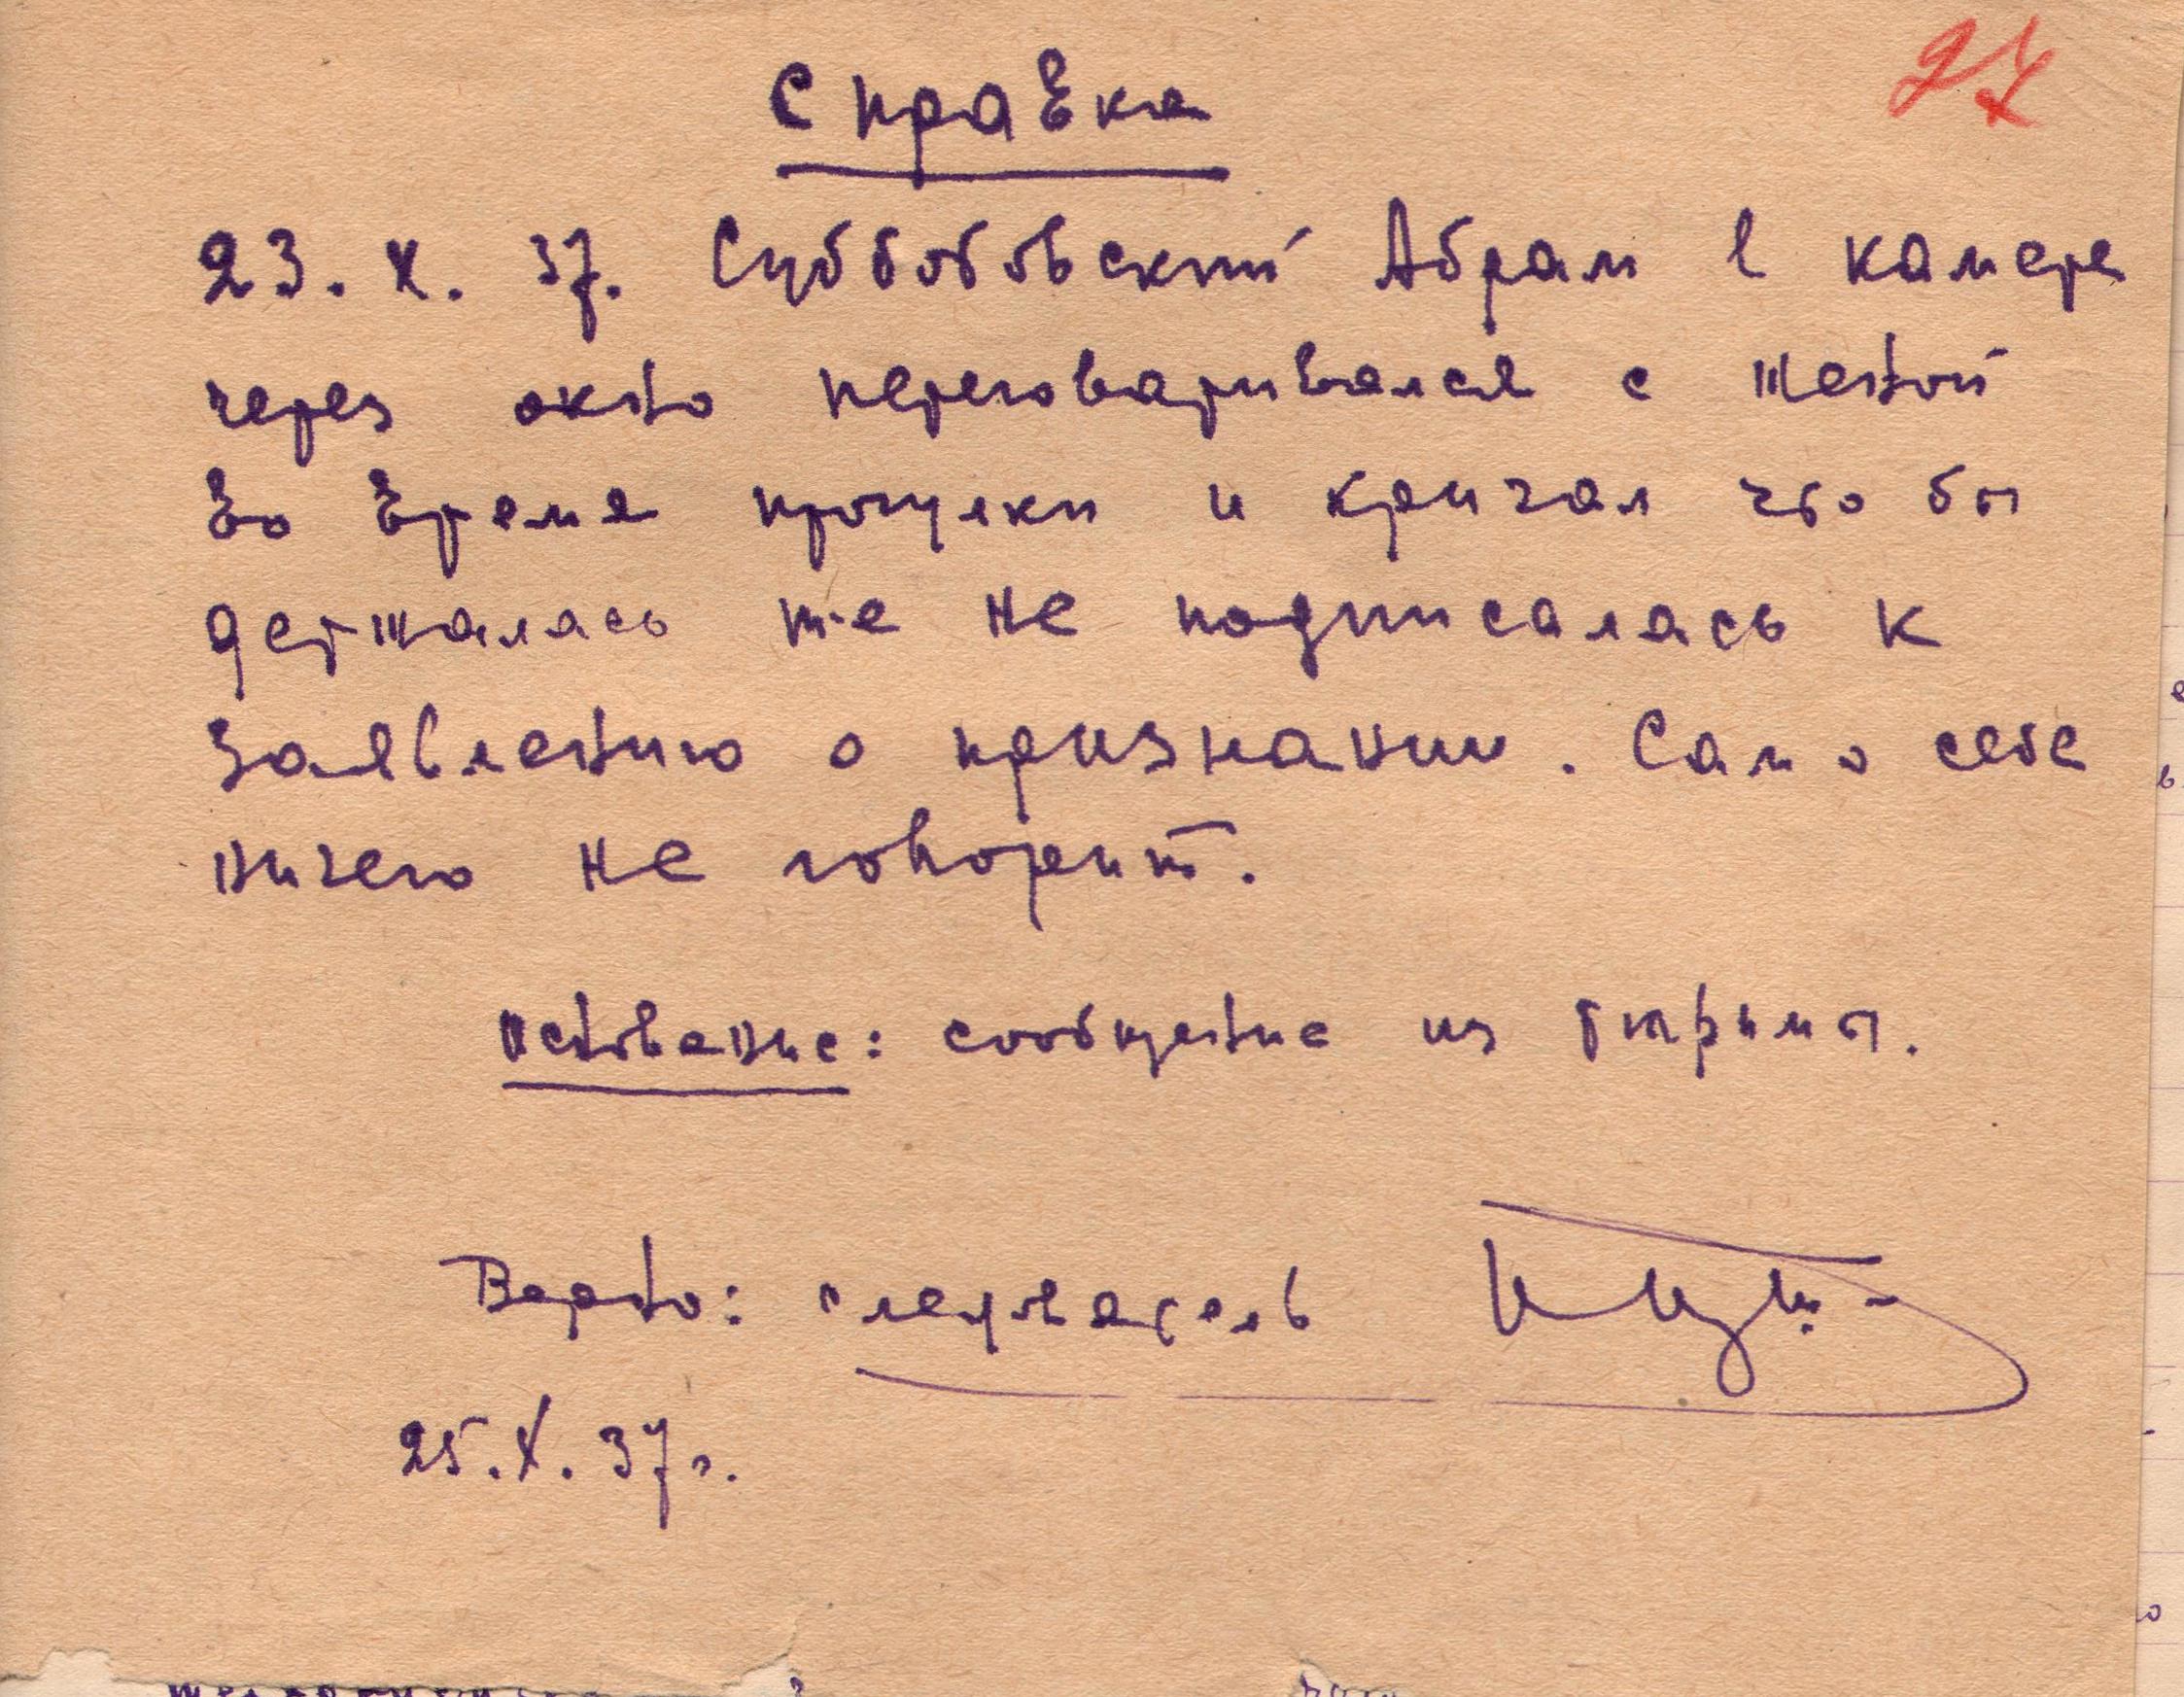 27
Справка
23. X. 37. Субботовский Абрам в камере
через окно переговаривался с женой
во время прогулки и кричал что бы
держалась не подписалась к
заявлению о признании. Сам о себе
ничего не говорит.
Основание: сообщение из тюрьмы.
Верно: следователь
25. X. 37 г.